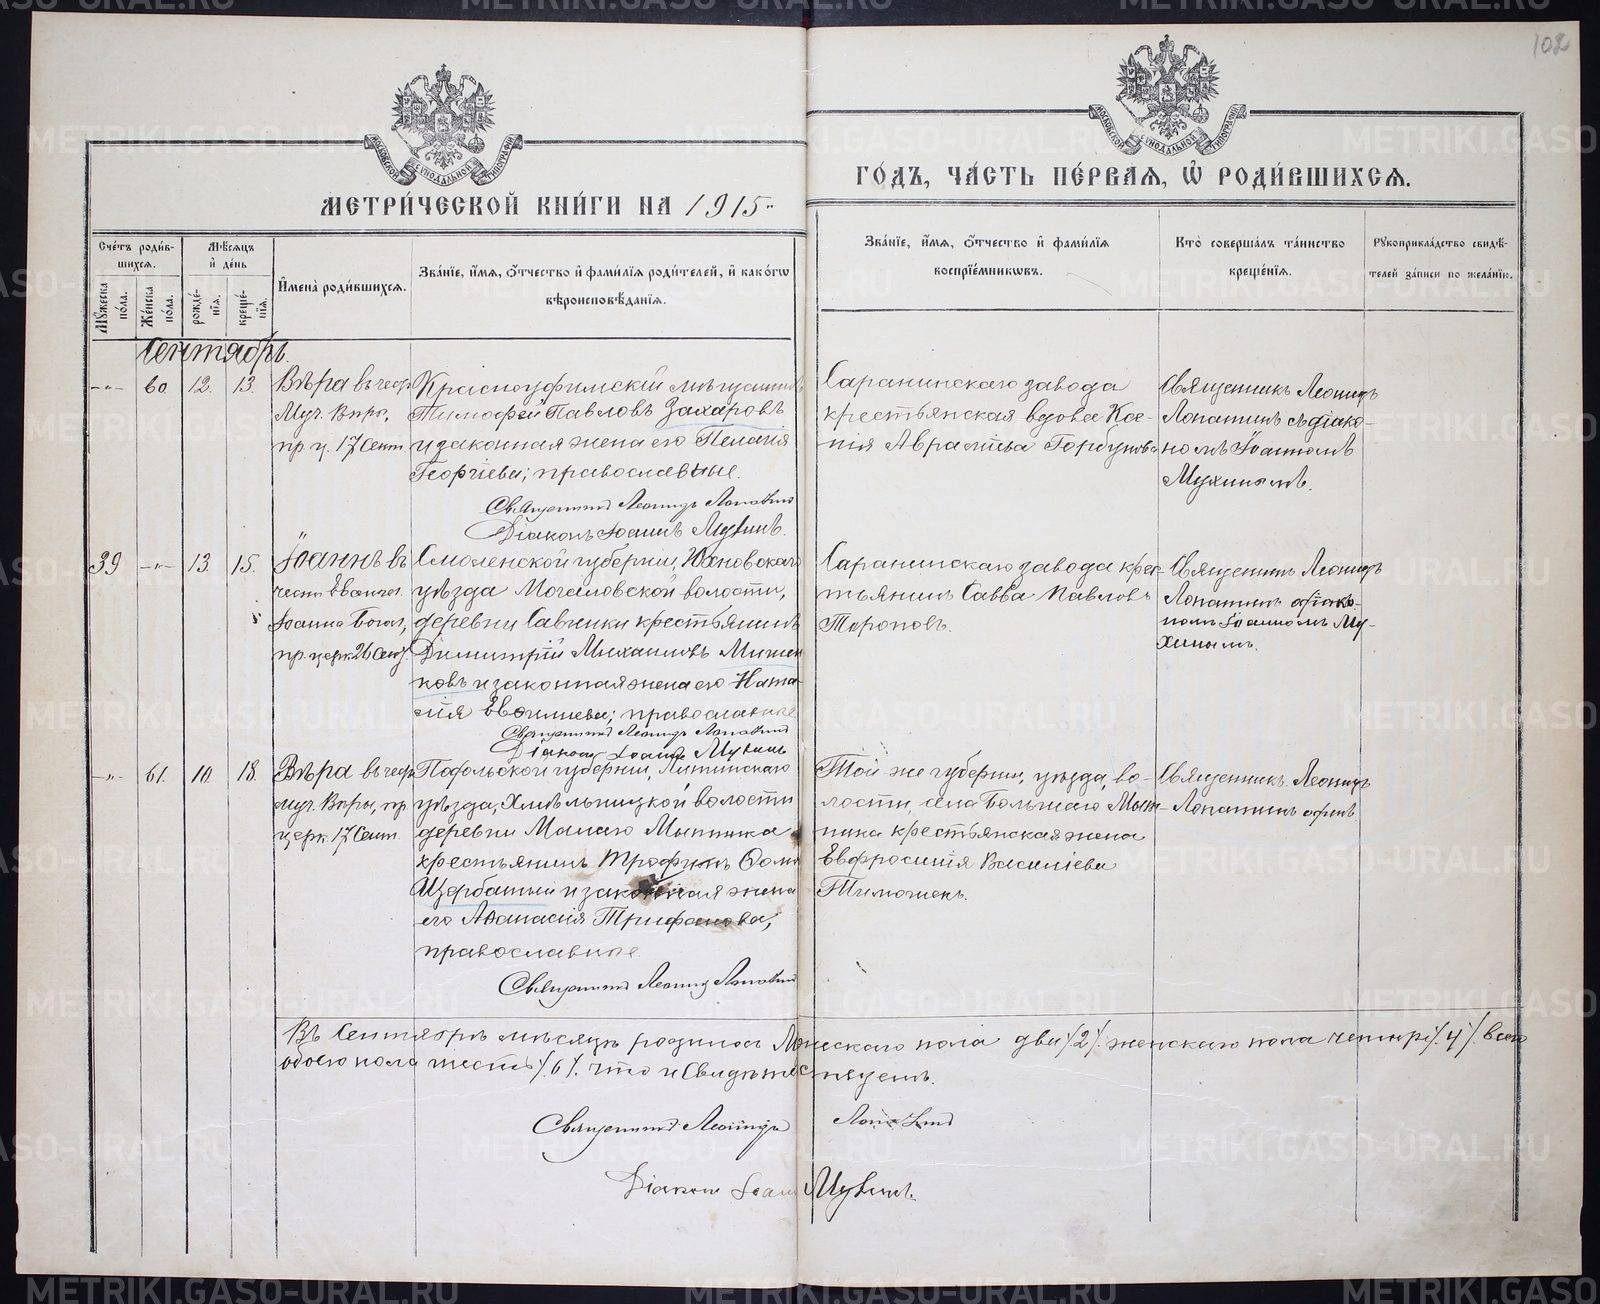 102
МОСКОВСКОЙ СѴНОДАЛЬНОЙ ТИПОГРАФІИ
МОСКОВСКОЙ СѴНОДАЛЬНОЙ ТИПОГРАФІИ
МЕТРИ́ЧЕСКОЙ КНИ́ГИ НА 1915
ГО́ДЪ, ЧА́СТЬ ПЕ́РВАѦ, Ѡ҆ РОДИ́ВШИХСѦ.
Сче́тъ роди́в-
шихсѧ.
Мꙋ́жеска по́ла.
Же́нска по́ла.
Мѣ́сѧцъ
и҆ де́нь
рожде́-
нїѧ.
креще́-
нїѧ.
И҆мена̀ роди́вшихсѧ.
Зва́нїе, и҆́мѧ, ѻ҆́тчество и҆ фами́лїѧ роди́телей, и҆ како́гѡ
вѣроисповѣ́данїѧ.
Зва́нїе, и҆́мѧ, ѻ҆́тчество и҆ фами́лїѧ
воспрїе́мникѡвъ.
Кто̀ соверша́лъ та́инство
креще́нїѧ.
Рꙋкоприкла́дство свидѣ́-
телей за́писи по жела́нїю.
Сентябрь.
-"- 60 12. 13.
Вѣра въ честь
Муч. Вѣры,
пр. ц. 17 Сент.
Красноуфимскій мѣщанинъ
Тимофей Павловъ Захаровъ
и законная жена его Пелагія
Георгіева; православные.
Священникъ Леонидъ Лопатинъ
Діаконъ Іоаннъ Мухинъ.
Саранинскаго завода
крестьянская вдова Ксе-
нія Авраміева Горбунова
Священникъ Леонидъ
Лопатинъ съ діако-
номъ Іоанномъ
Мухинымъ.
39 -"- 13. 15.
Іоаннъ въ
честь Евангел.
Іоанна Богос.,
пр. церк. 26 Сент.
Смоленской губерніи, Юхновскаго
уѣзда
волости,
деревни Савинки крестьянинъ
Димитрій Михаиловъ Мишен
ковъ и законная жена его Ната
лія; православные
Священникъ Леонидъ Лопатинъ
Діаконъ Іоаннъ Мухинъ
Саранинскаго завода крес-
тьянинъ Савва Павловъ
Торопов.
Священникъ Леонидъ
Лопатинъ с діако-
номъ Іоанномъ Му-
хинымъ.
-"- 61. 10. 18.
Вѣра въ честь
муч. Вѣры, пр.
церк. 17 Сент.
Подольской губерніи, Литинскаго
уѣзда, Хмѣльницкой волости
деревни Малаго Мытника
крестьянинъ Трофимъ Ѳома
Щербатый и законная жена
его Аѳанасія Трифонова,
православные.
Священникъ Леонидъ Лопатинъ
Той же губерніи, уѣзда, во-
лости, села Большаго Мыт-
ника крестьянская жена
Евфросинія Василіева
Тимочиекъ.
Священникъ Леонидъ
Лопатинъ одинъ.
Въ Сентябрѣ мѣсяцѣ родилось Мужескаго пола два /2/. женскаго пола четыре /.4/. всего
обоего пола шесть /.6/. что и Свидѣтельствуемъ.
Священникъ Леонидъ Лопатинъ
Діаконъ Іоаннъ Мухинъ.
METRIKI.GASO-URAL.RU